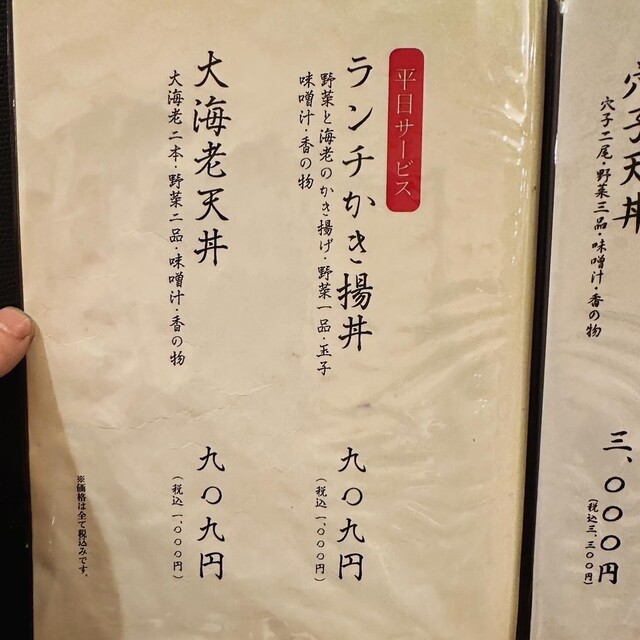 穴子天丼
穴子二尾・野菜三品・味噌汁・香の物
三、〇〇〇円
（税込三、三〇〇円）
平日サービス
ランチかき揚丼
野菜と海老のかき揚げ・野菜一品・玉子
味噌汁・香の物
九〇九円
（税込一、〇〇〇円）
大海老天丼
大海老二本・野菜二品・味噌汁・香の物
九〇九円
（税込一、〇〇〇円）
※価格は全て税込みです。